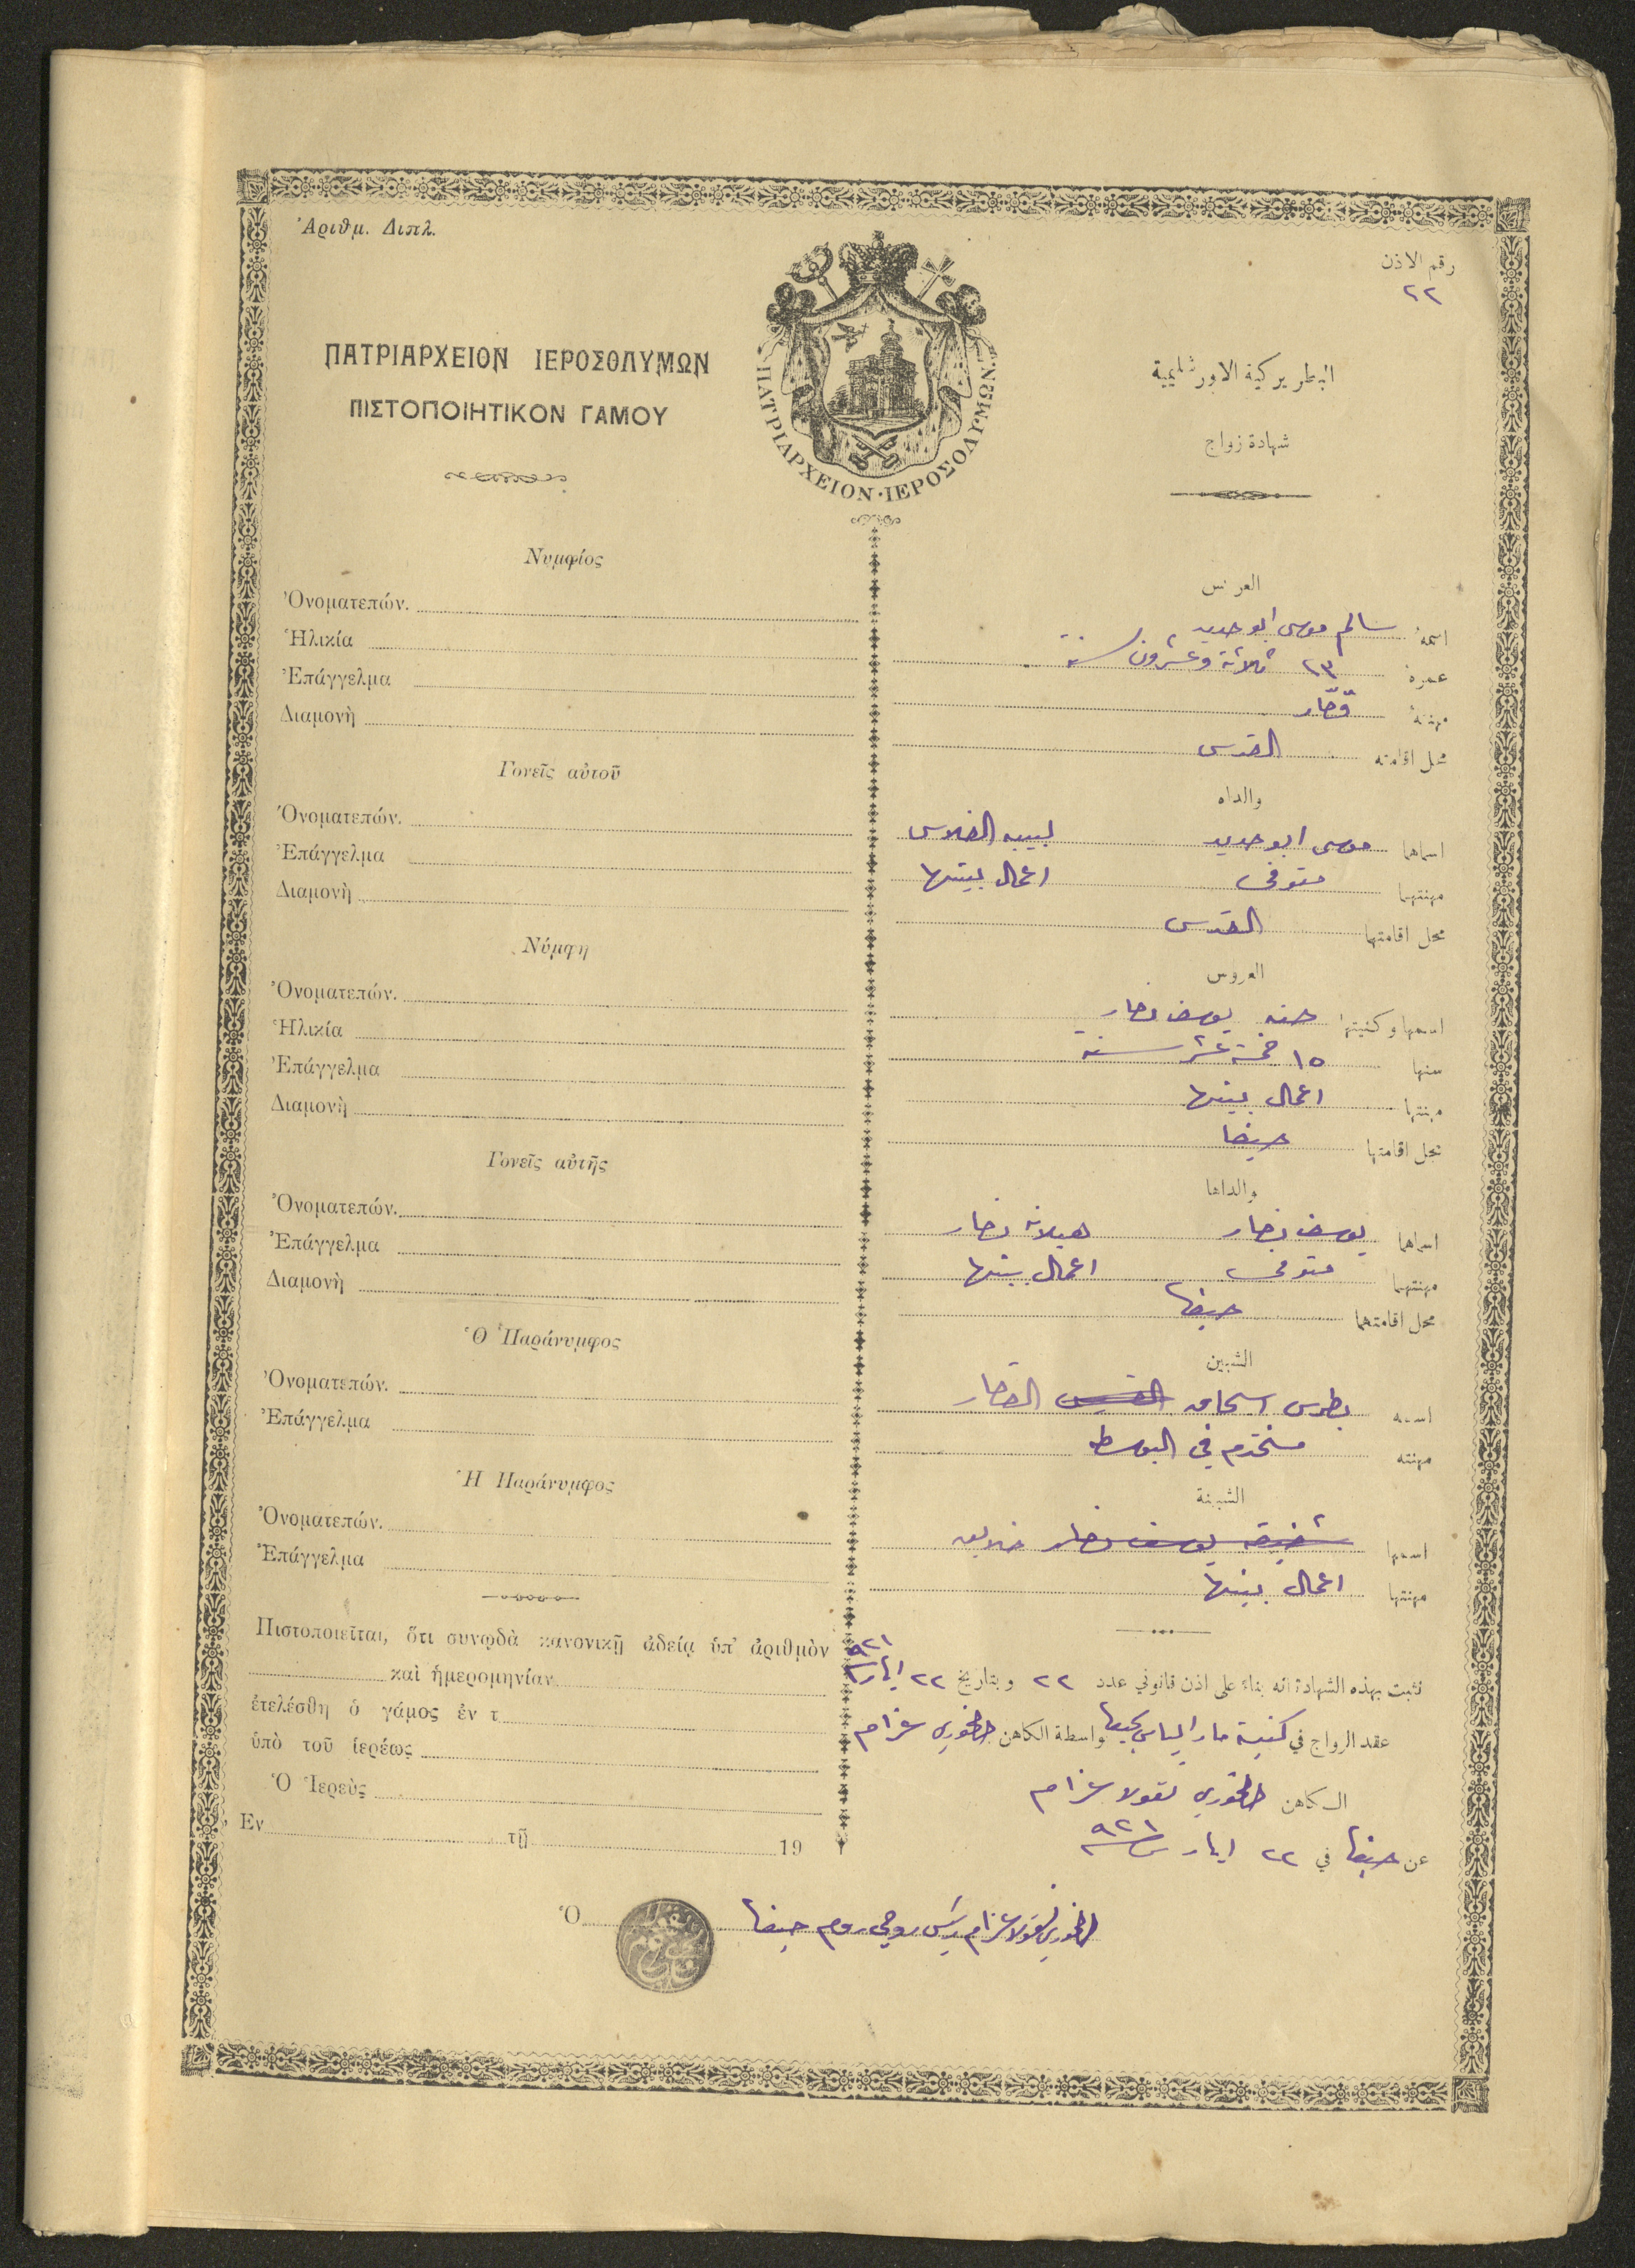 Ἀριθμ. Διπλ.
رقم الاذن
٢٢
ΠΑΤΡΙΑΡΧΕΙΟΝ ΙΕΡΟΣΟΛΥΜΩΝ
ΠΙΣΤΟΠΟΙΗΤΙΚΟΝ ΓΑΜΟΥ
ΠΑΤΡΙΑΡΧΕΙΟΝ·ΙΕΡΟΣΟΛΥΜΩΝ.
البطريركية الاورشليمية
شهادة زواج
Νυμφίος
Ὀνοματεπών.
Ἡλικία
Ἐπάγγελμα
Διαμονὴ
Γονεῖς αὐτοῦ
Ὀνοματεπών.
Ἐπάγγελμα
Διαμονὴ
Νύμφη
Ὀνοματεπών.
Ἡλικία
Ἐπάγγελμα
Διαμονὴ
Γονεῖς αὐτῆς
Ὀνοματεπών.
Ἐπάγγελμα
Διαμονὴ
Ὁ Παράνυμφος
Ὀνοματεπών.
Ἐπάγγελμα
Ἡ Παράνυμφος
Ὀνοματεπών.
Ἐπάγγελμα
Πιστοποιεῖται, ὅτι συνῳδὰ κανονικῇ ἀδείᾳ ὑπ' ἀριθμὸν
καὶ ἡμερομηνίαν
ἐτελέσθη ὁ γάμος ἐν τ
ὑπὸ τοῦ ἱερέως
Ὁ Ἱερεὺς
Εν τῇ 19
Ὁ
العريس
اسمهُ سالم موسى ابو حديد
عمرهُ ٢٣ ثلاثة وعشرون سنة
مهنتهُ
محل اقامته القدس
والداه
اسماهما موسى ابو حديد لبيبه
مهنتهما متوفى اعمال بيتها
محل اقامتهما القدس
العروس
اسمها وكنيتها حنه يوسف نصار
سنها ١٥ خمسة عشر سنة
مهنتها اعمال بيتها
محل اقامتها حيفا
والداها
اسماهما يوسف نصار هيلانه نصار
مهنتهما متوفى اعمال بيتها
محل اقامتهما حيفا
الشبين
اسمه بطرس اسحاق
مهنته مستخدم في البوسطه
الشبينة
اسمها شفيقه يوسف نصار
مهنتها اعمال بيتها
نثبت بهذه الشهادة انه بناءً على اذن قانوني عدد ٢٢ وبتاريخ ٢٢ ايار ٩٢١
عقد الزواج في كنيسة مار الياس بحيفا بواسطة الكاهن الخوري عزام
الكاهن الخوري نقولا عزام
عن حيفا في ٢٢ ايار سنة ٩٢١
الخوري نقولا عزام رئيس روحي روم حيفا